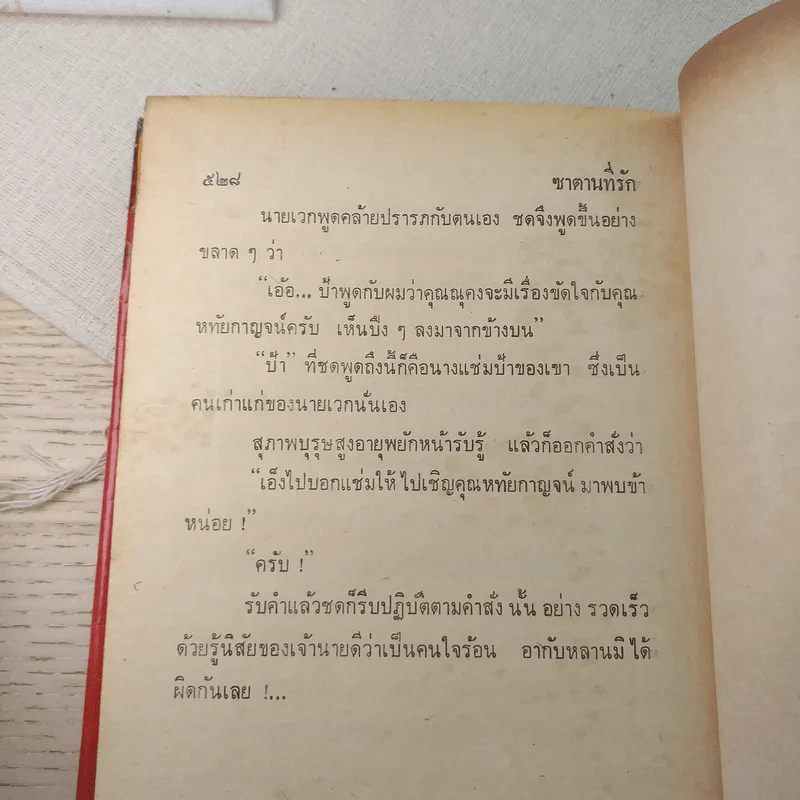 ๕๒๘ ซาตานที่รัก
นายเวกพูดคล้ายปรารภกับตนเอง ชดจึงพูดขึ้นอย่าง
ขลาด ๆ ว่า
“เอ้อ... ป้าพูดกับผมว่าคุณณุคงจะมีเรื่องขัดใจกับคุณ
หทัยกาญจน์ครับ เห็นปึง ๆ ลงมาจากข้างบน”
“ป้า” ที่ชดพูดถึงนี้ก็คือนางแช่มป้าของเขา ซึ่งเป็น
คนเก่าแก่ของนายเวกนั่นเอง
สุภาพบุรุษสูงอายุพยักหน้ารับรู้ แล้วก็ออกคำสั่งว่า
“เอ็งไปบอกแช่มให้ ไปเชิญคุณหทัยกาญจน์ มาพบข้า
หน่อย !”
“ครับ !”
รับคำแล้วชดก็รีบปฏิบัติตามคำสั่ง นั้น อย่าง รวดเร็ว
ด้วยรู้นิสัยของเจ้านายดีว่าเป็นคนใจร้อน อากับหลานมิ ได้
ผิดกันเลย !...